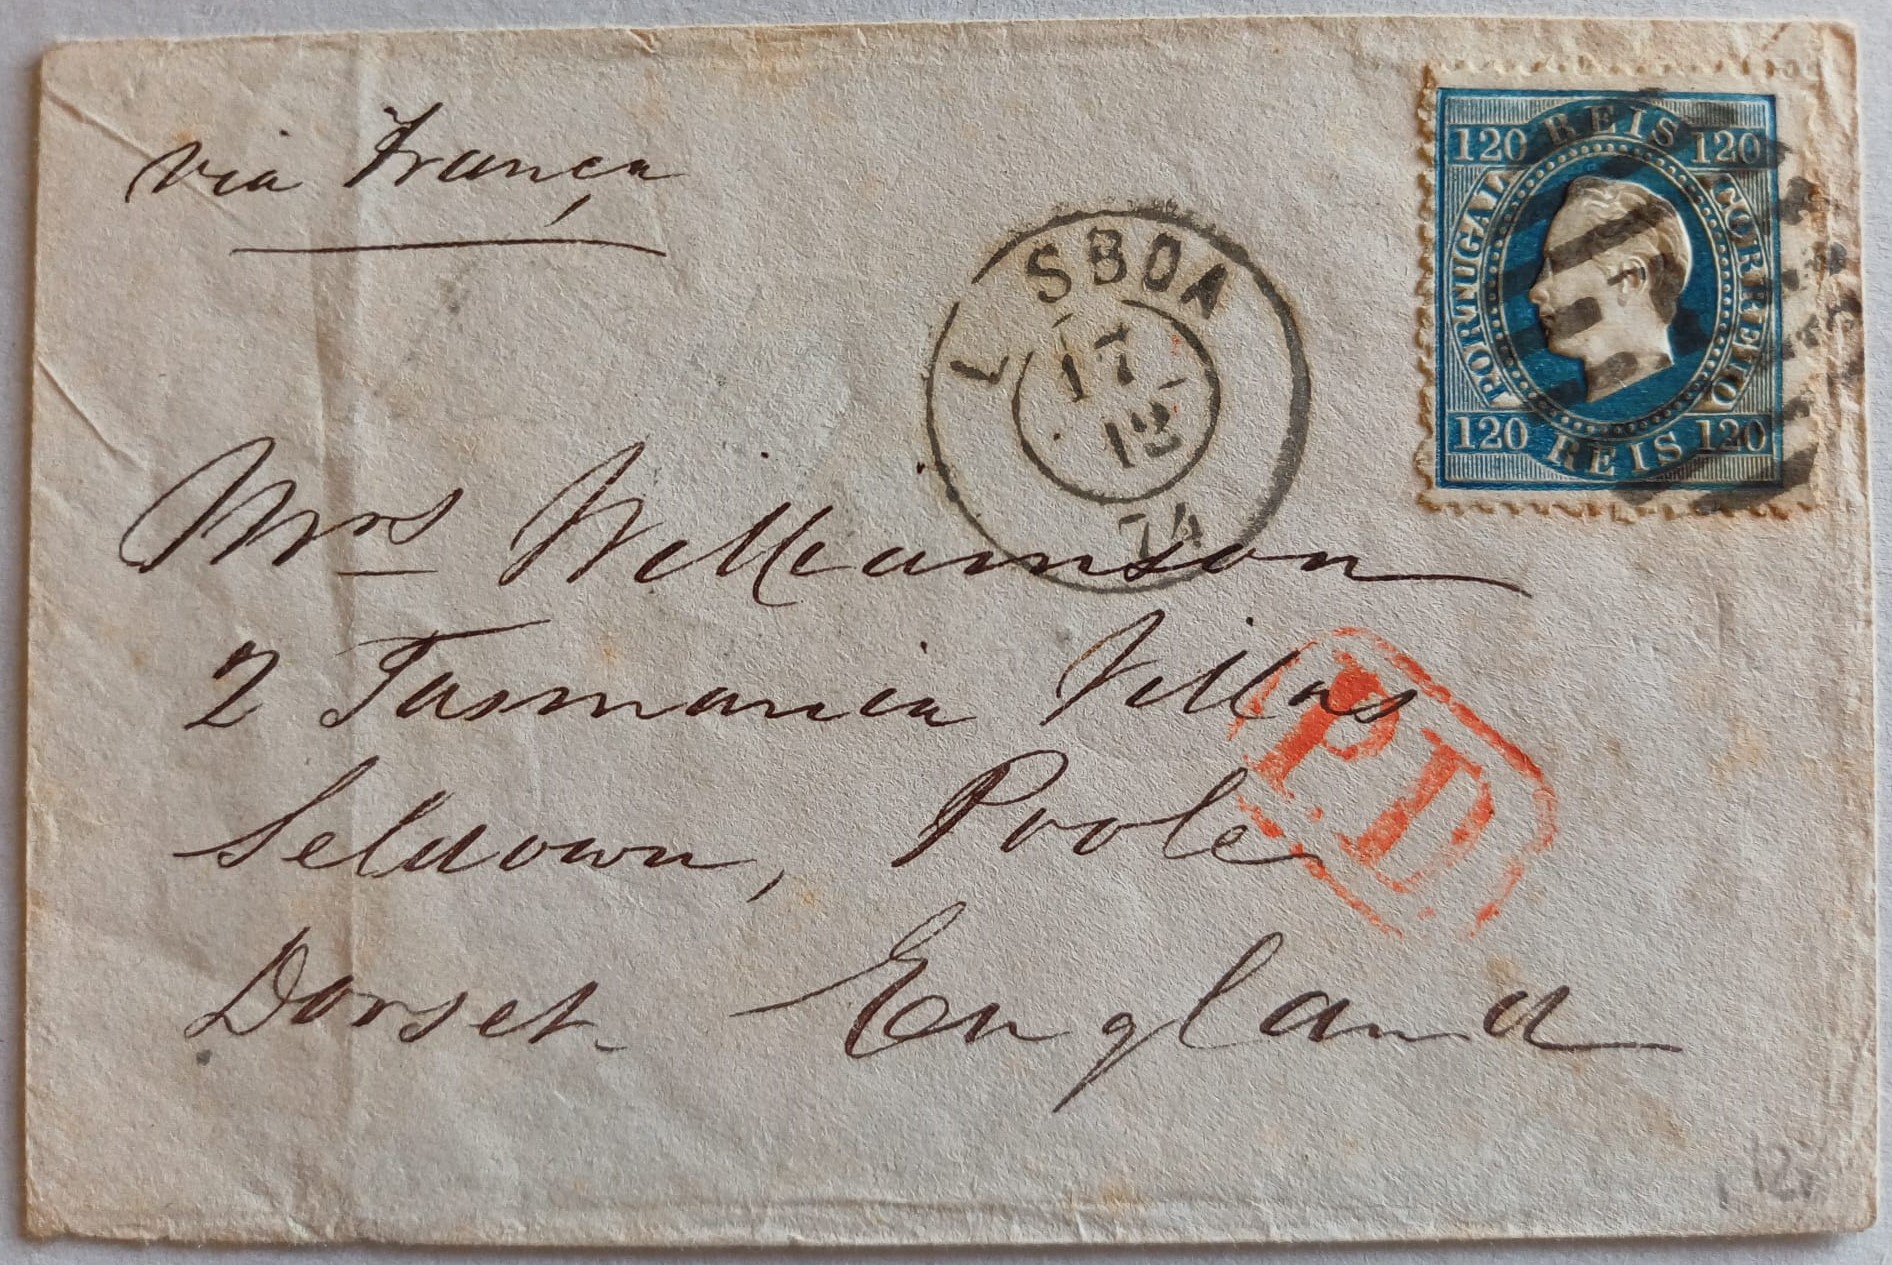 via França
120 REIS 120
PORTUGAL
CORREIO
120 REIS 120
LISBOA
17
12
74
Mrs Williamson
2 Tasmania Villas
P.D.
Seldown, Poole
Dorset England